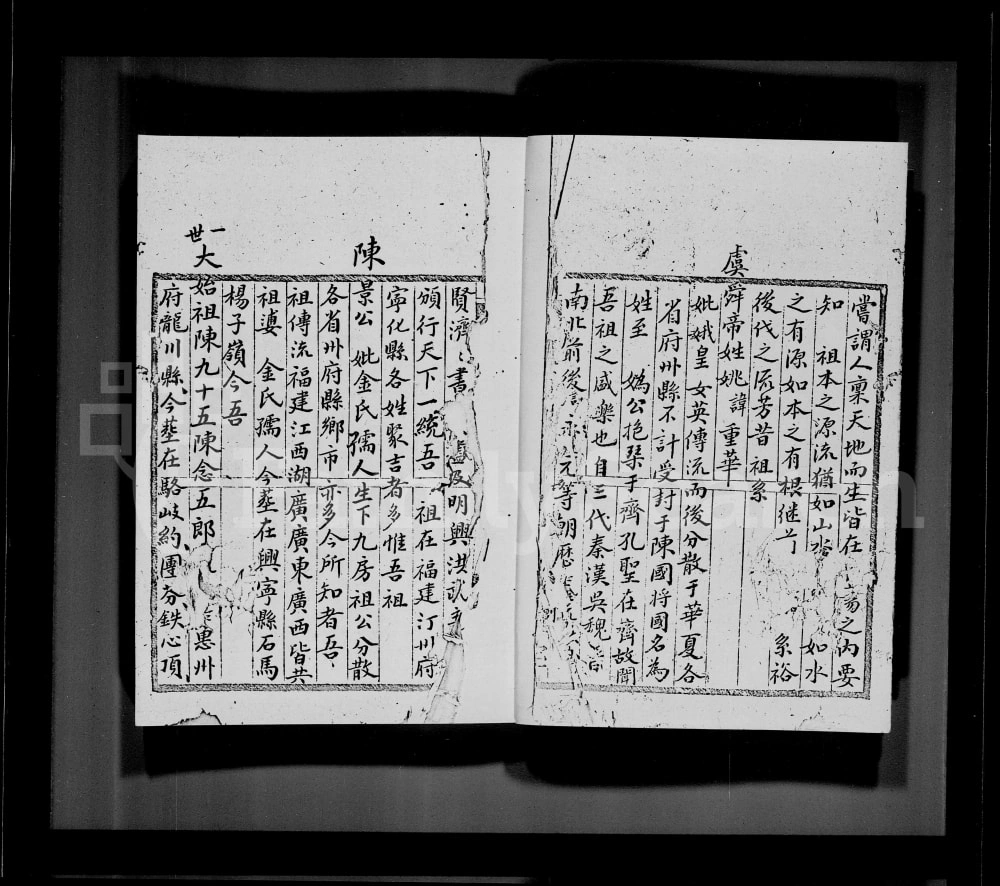 嘗謂人稟天地而生皆在 之內要
知 祖本之源流猶如山 如水
之有源如本之有根继
後代之流芳昔祖系 系裕
虞
舜帝姓姚諱重華
妣娥皇女英傳流而後分散于華夏各
省府州縣不計受封于陳國將國名為
姓至 媯公抱琴于齊孔聖在齊故聞
吾祖之咸樂也自三代秦漢吳魏晉
南北前後 元等朝歷
賢濟 書 及明興洪武
頒行天下一統吾 祖在福建汀州府
寧化縣各姓聚吉者多惟吾祖
陳
景公 妣金氏孺人生下九房祖公分散
各省州府縣鄉市亦多今所知者吾
祖傳流福建江西湖廣廣東廣西皆共
祖婆 金氏孺人今塟在興寧縣石馬
楊子嶺今吾
一世
大始祖陳九十五陳念五郎 惠州
府龍川縣今塟在駱岐約團芬鉄心頂